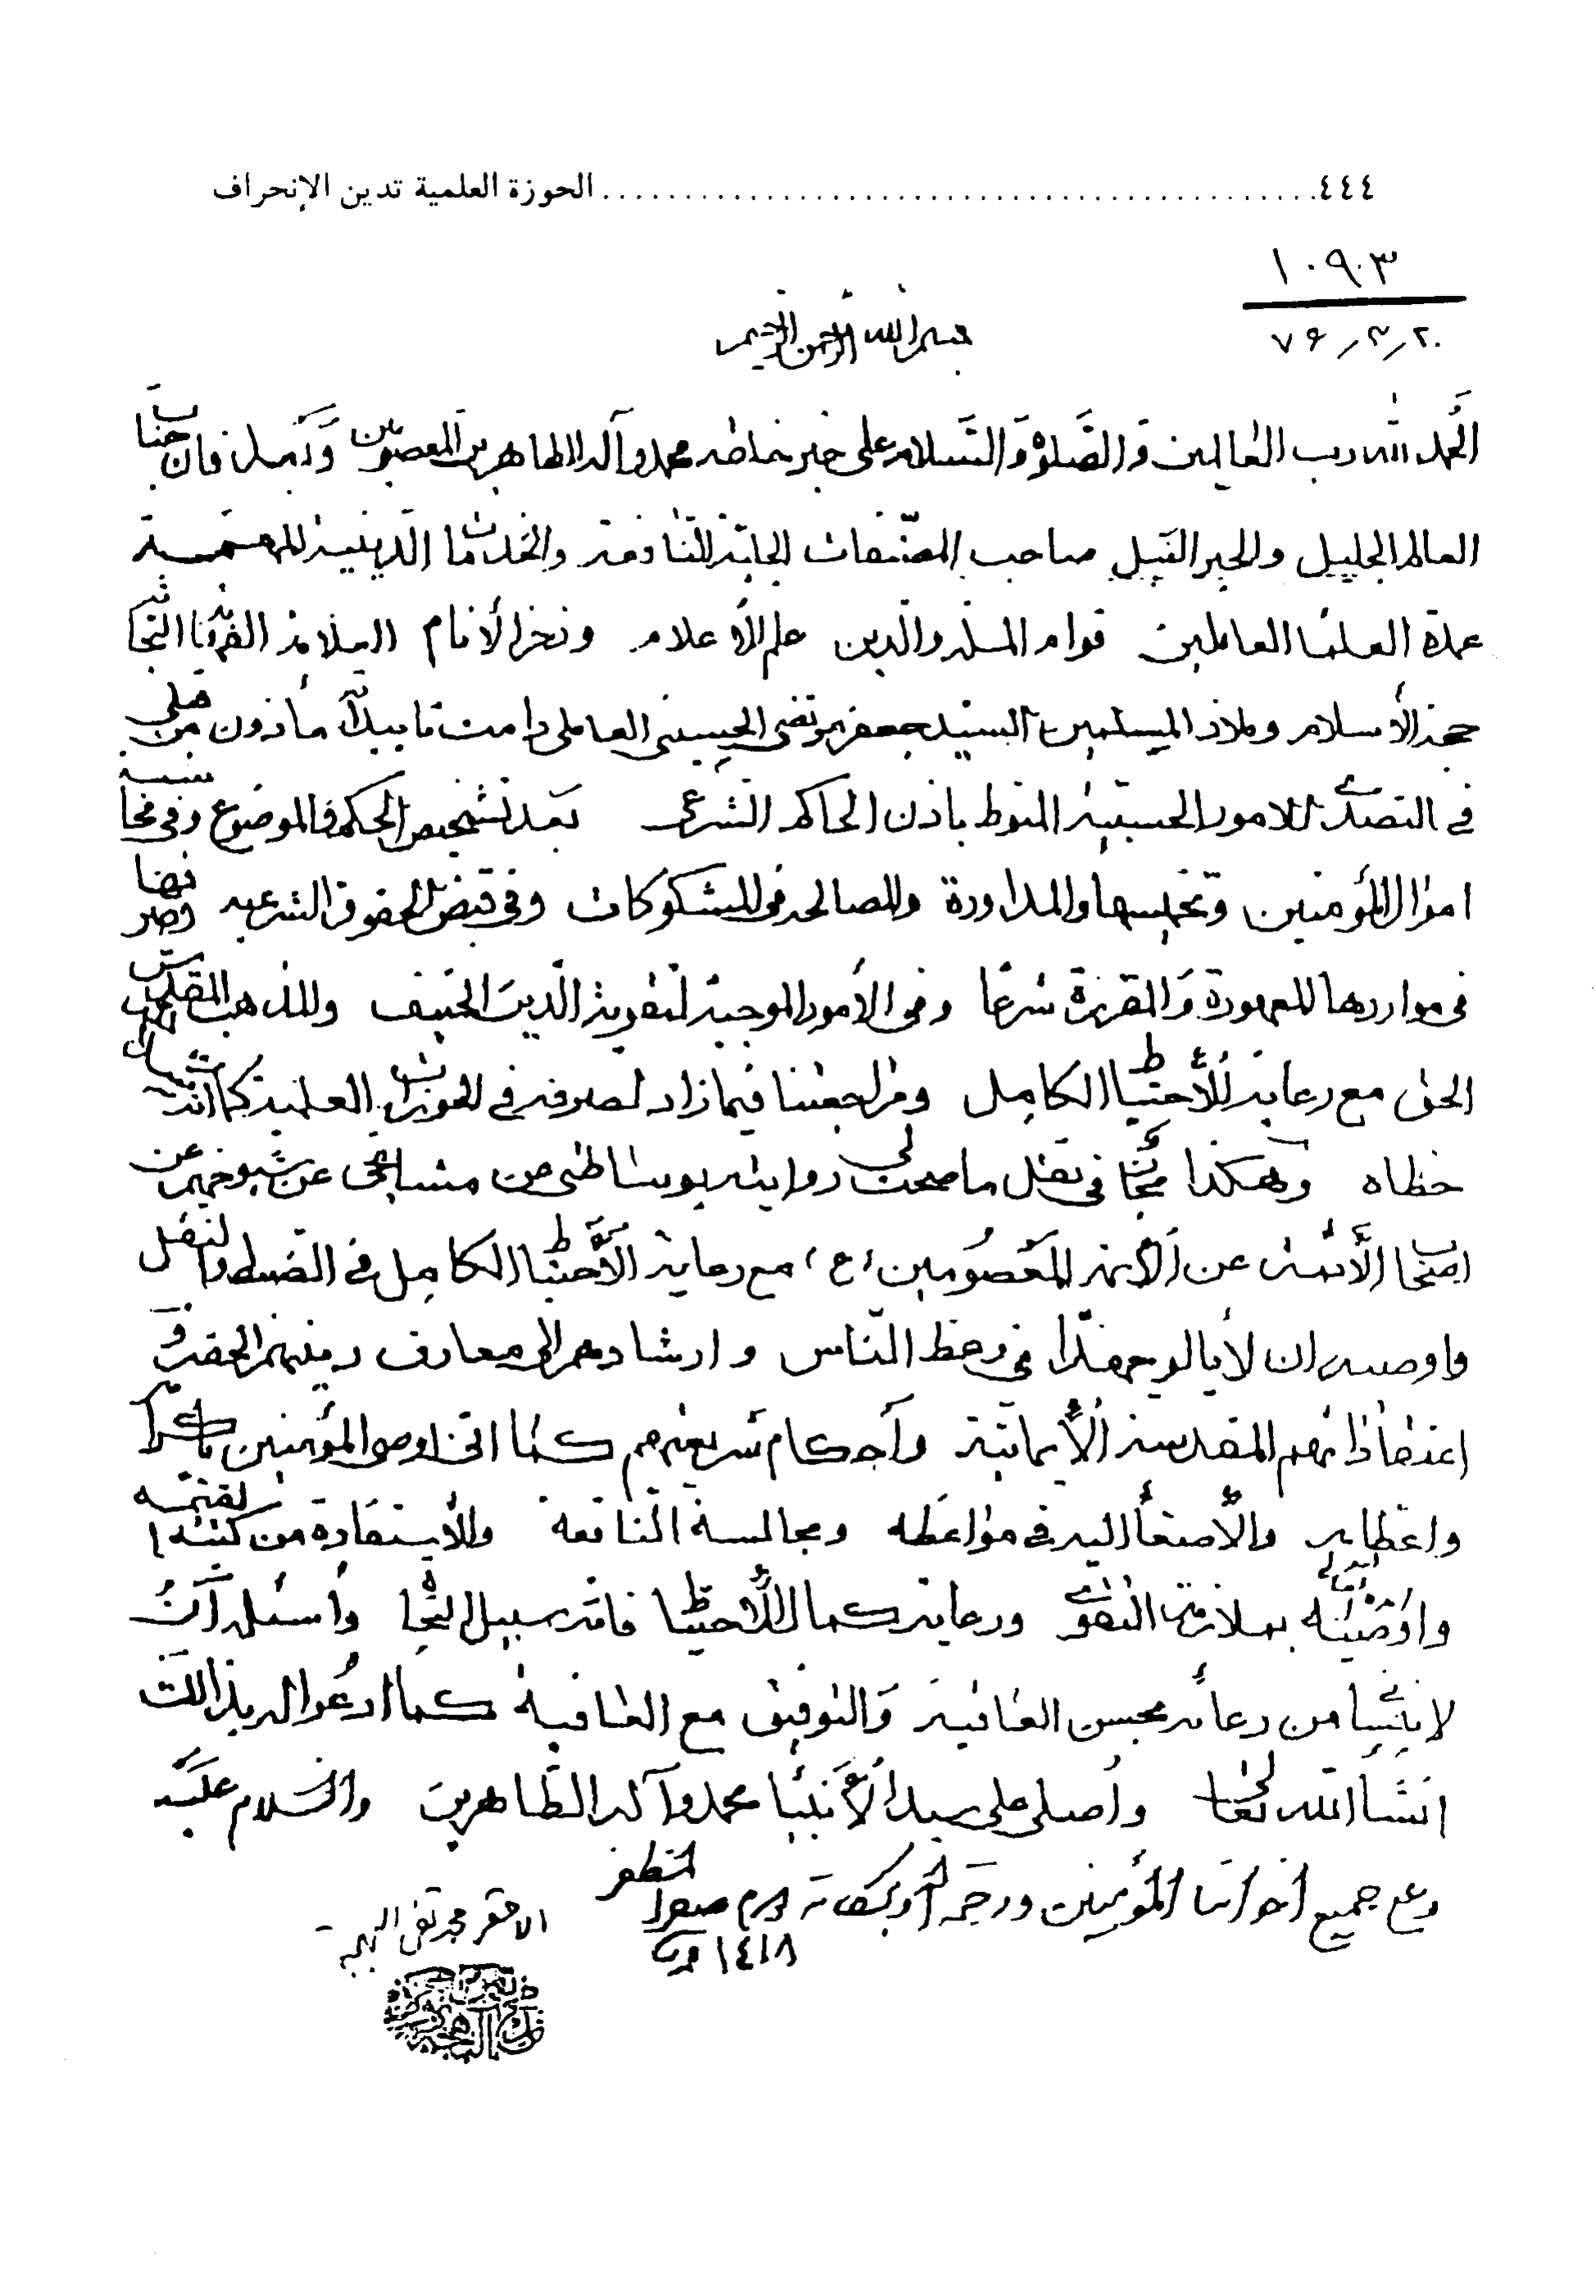 ٤٤٤ .......................................... الحوزة العلمية تدين الإنحراف
١٠٩٠٣
٧۶/٣/٢٠
بسم الله الرحمن الرحیم
الحمد لله رب العالمین و الصلوة و السلام علی خیر محمد و آله الطاهرین المعصومین وَبَعد فان جناب
العالم الجلیل والحبر النبیل صاحب المصنفات الجلیلة النافعة والخدمات الدینیة المهمة
عمدة العلماء العاملین قوام الملة والدین علم الأعلام وفخر الأنام
حجة الأسلام وملاذ المسلمین السید جعفر مرتضی الحسینی العاملی دامت تاییداته مأذون من قبلی
فی التصدی للامور الحسبیة المنوط باذن الحاکم الشرعی بعد تشخیص الحکم والموضوع وفی محاسبة
اموال المؤمنین وتخمیسها والمداورة والمصالحة فی المشکوکات وفی قبض الحقوق الشرعیة وصرفها
فی مواردها المعهودة والمقررة شرعاً وفی الأمور الموجبة لتقویة الدین الحنیف والمذهب
الحق مع رعایة الأحتیاط الکامل ومراجعتنا فیما زاد لصرفه فی الحوزات العلمیة کما
خطاه وهکذا مجاز فی نقل ما صحت لی روایته بوساطتی من مشایخی عن شیوخهم عن
اصحاب الأئمة عن الأئمة المعصومین (ع) مع رعایة الأحتیاط الکامل فی الضبط والنقل
واوصیه ان لا یألو جهداً فی وعظ الناس و ارشادهم الی معارف دینهم الحقة و
اعتقاداتهم المقدسة الأیمانیة وأحکام شریعتهم کما انی اوصی المؤمنین باکرامه
واعظامه والأصغاء الیه فی مواعظه ومجالسه النافعة والأستفادة من کتبه القیمة
واوصیته بملازمة التقوی ورعایة کمال الأحتیاط فانه سبیل النجاة وأسئله أن
لا ینسیا من دعائه بحسن العاقبة والتوفیق مع العافیة کما ادعوا له بذالک
انشاء الله تعالی وأصلی علی سید الأنبیاء محمد وآله الطاهرین والسلام علیه
وعلی جمیع أخواننا المؤمنین ورحمة الله وبرکاته صفر المظفر
١٤١٨
الاحقر محمد تقی البهجة